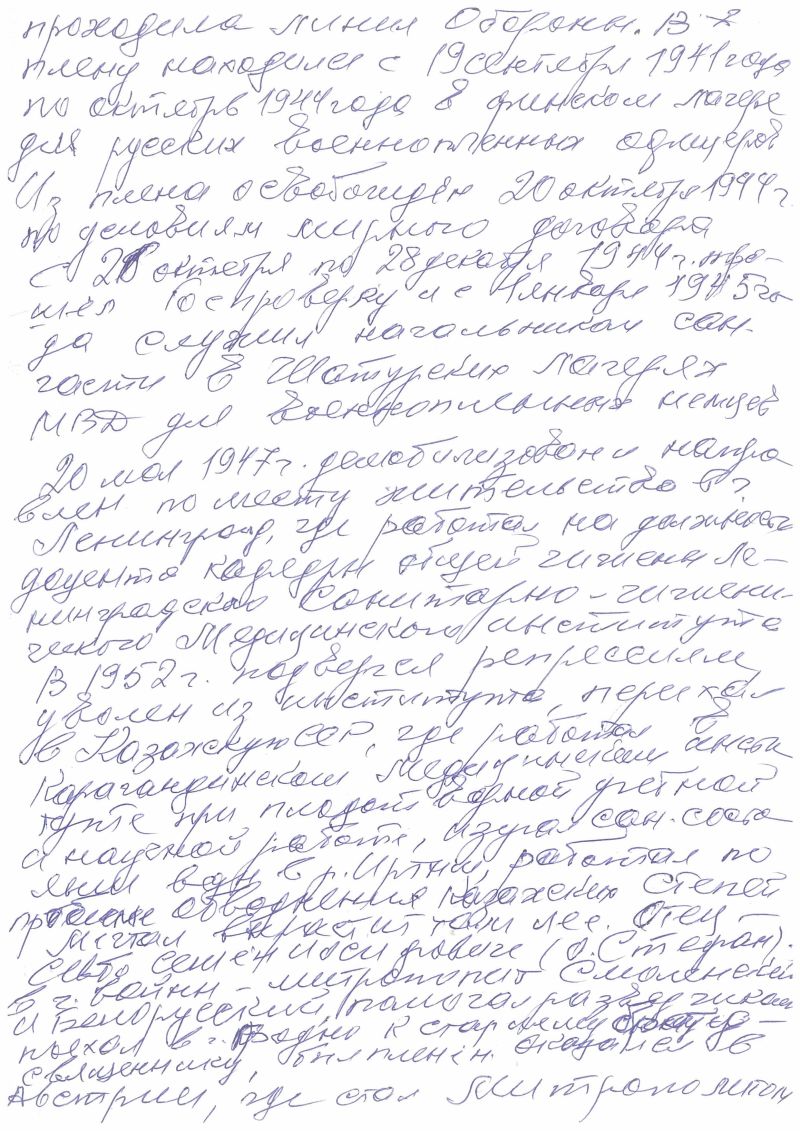 проходила линия Обороны. В
плену находился с 19 сентября 1941 года
по октябрь 1944 года в финском лагере
для русских военнопленных офицеров
Из плена освобождён 20 октября 1944 г.
по условиям мирного договора
С 21 октября по 28 декабря 1944 г. про-
шёл Госпроверку и с 1 января 1945 го-
да служил начальником сан-
части в Шатурских лагерях
МВД для военнопленных немцев
20 мая 1947 г. демобилизован и напра
влен по месту жительство в г
Ленинград, где работал на должность
доцента кафедры общей гигиены Ле-
нинградского Санитарно-гигиени-
ческого Медицинского института
В 1952 г. подвергся репрессиям,
уволен из института, переехал
в Казахскую ССР, где работал в
Карагандинском Медицинском инсти
туте при плодотворной учебной
и научной работе, изучал сан. состо
яния вод в р. Иртыш, работал по
обводнения казахских Степей
Мечтал вырастит там лес. Отец
Семен (о. Стефан).
в г. войны - митрополит Смоленский
и Белорусский, помогал разведчикам
поехал в г. к старшему
священнику, был пленён. оказался в
Австрии, где стал Митрополитом